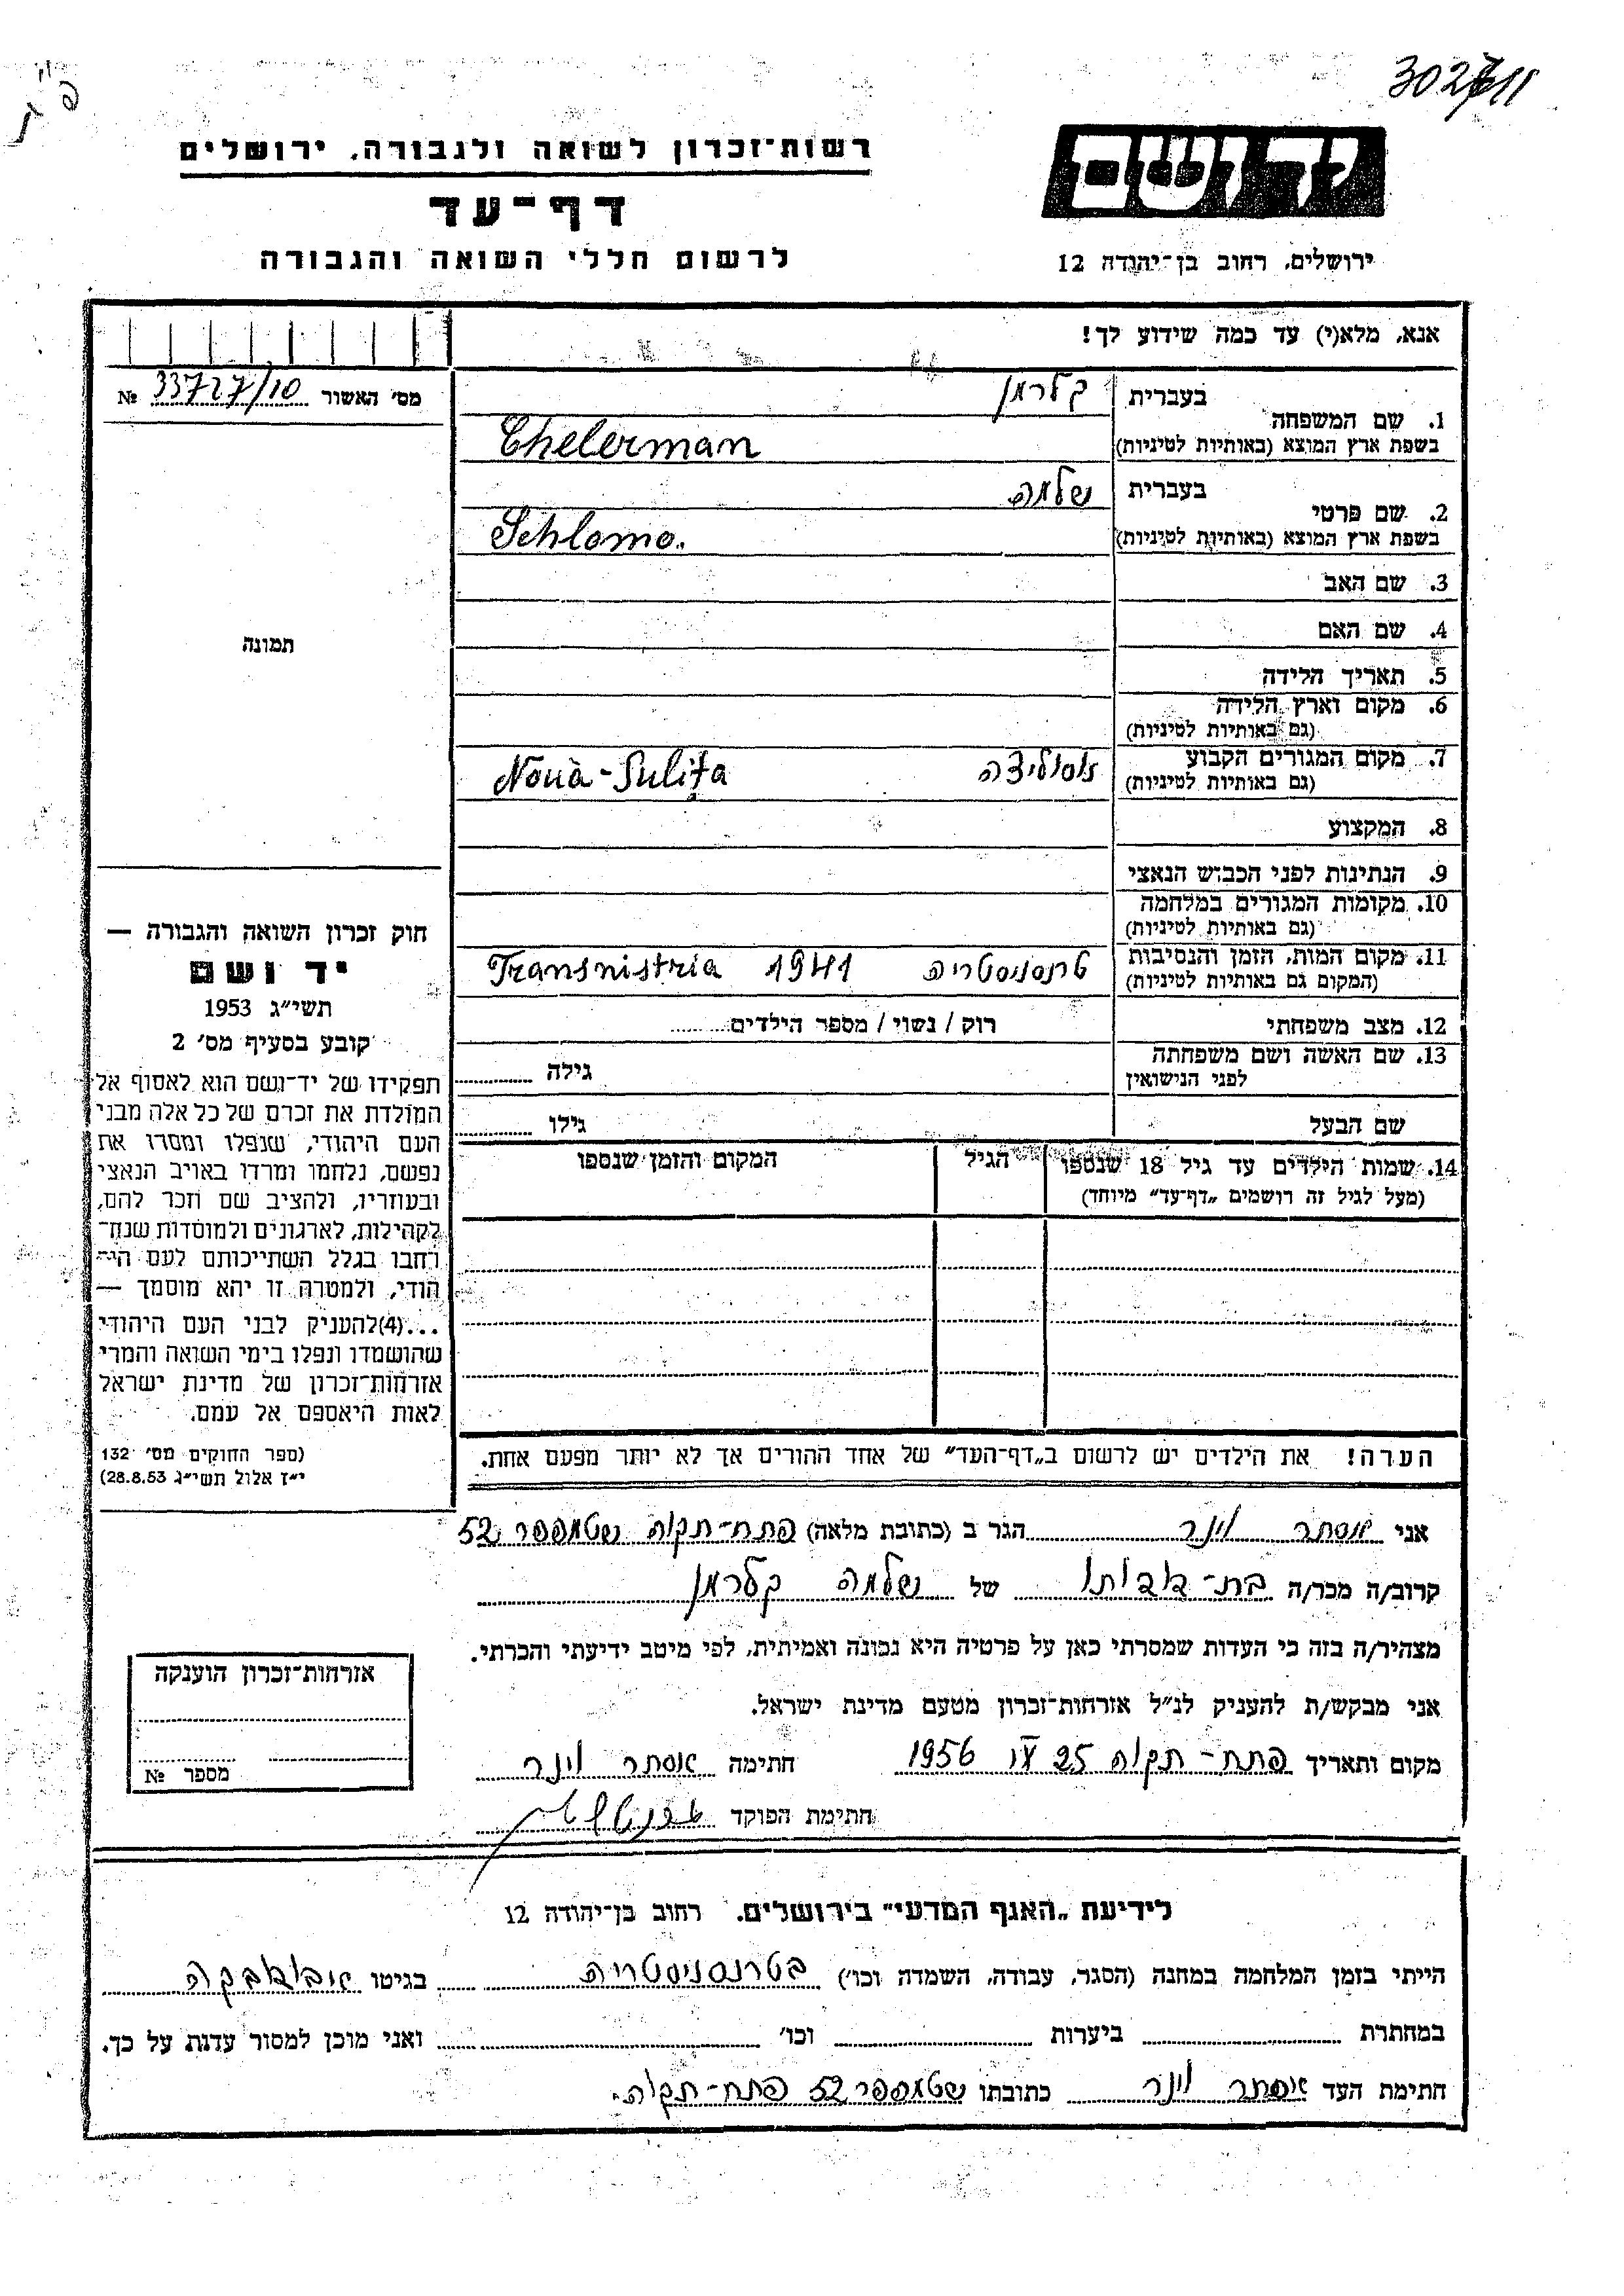 302611
רשות־זכרון לשואה ולגבורה, ירושלים
יד ושם
דף־עד
לרשום חללי השואה והגבורה
ירושלים, רחוב בן־יהודה 12
אנא, מלא(י) עד כמה שידוע לך!
מס׳ האשור 33727/10 №
1. שם המשפחה
בעברית קלרמן
בשפת ארץ המוצא (באותיות לטיניות) Chelerman
2. שם פרטי
בעברית שלמה
בשפת ארץ המוצא (באותיות לטיניות) Schlomo.
3. שם האב
4. שם האם
תמונה
5. תאריך הלידה
6. מקום וארץ הלידה
(גם באותיות לטיניות)
7. מקום המגורים הקבוע נוסוליצה Nouà-Suliţa
(גם באותיות לטיניות)
8. המקצוע
9. הנתינות לפני הכבוש הנאצי
10. מקומות המגורים במלחמה
(גם באותיות לטיניות)
11. מקום המות, הזמן והנסיבות טרנסניסטריה 1941 Transnistria
(המקום גם באותיות לטיניות)
12. מצב משפחתי רוק / נשוי / מספר הילדים
13. שם האשה ושם משפחתה
לפני הנישואין גילה
שם הבעל גילו
14. שמות הילדים עד גיל 18 שנספו הגיל המקום והזמן שנספו
(מעל לגיל זה רושמים „דף־עד״ מיוחד)
חוק זכרון השואה והגבורה —
יד ושם
תשי״ג 1953
קובע בסעיף מס׳ 2
תפקידו של יד־ושם הוא לאסוף אל
המולדת את זכרם של כל אלה מבני
העם היהודי, שנפלו ומסרו את
נפשם, נלחמו ומרדו באויב הנאצי
ובעוזריו, ולהציב שם וזכר להם,
לקהילות, לארגונים ולמוסדות שנח־
רבו בגלל השתייכותם לעם הי־
הודי, ולמטרה זו יהא מוסמך —
...(4) להעניק לבני העם היהודי
שהושמדו ונפלו בימי השואה והמרי
אזרחות־זכרון של מדינת ישראל
לאות היאספם אל עמם.
(ספר החוקים מס׳ 132
י״ז אלול תשי״ג 28.8.53)
הערה! את הילדים יש לרשום ב„דף־העד״ של אחד ההורים אך לא יותר מפעם אחת.
אני אסתר וינר הגר ב (כתובת מלאה) פתח־תקוה שטמפפר 52
קרוב/ה מכר/ה בת־דודתו של שלמה קלרמן
מצהיר/ה בזה כי העדות שמסרתי כאן על פרטיה היא נכונה ואמיתית, לפי מיטב ידיעתי והכרתי.
אני מבקש/ת להעניק לנ״ל אזרחות־זכרון מטעם מדינת ישראל.
מקום ותאריך פתח־תקוה 25 IV 1956 חתימה אסתר וינר
חתימת הפוקד
אזרחות־זכרון הוענקה
מספר №
לידיעת „האגף המדעי״ בירושלים, רחוב בן־יהודה 12
הייתי בזמן המלחמה במחנה (הסגר, עבודה, השמדה וכו׳) בטרנסניסטריה בגיטו אובודבקה
במחתרת ביערות וכו׳ ואני מוכן למסור עדות על כך.
חתימת העד אסתר וינר כתובתו שטמפפר 52 פתח־תקוה.